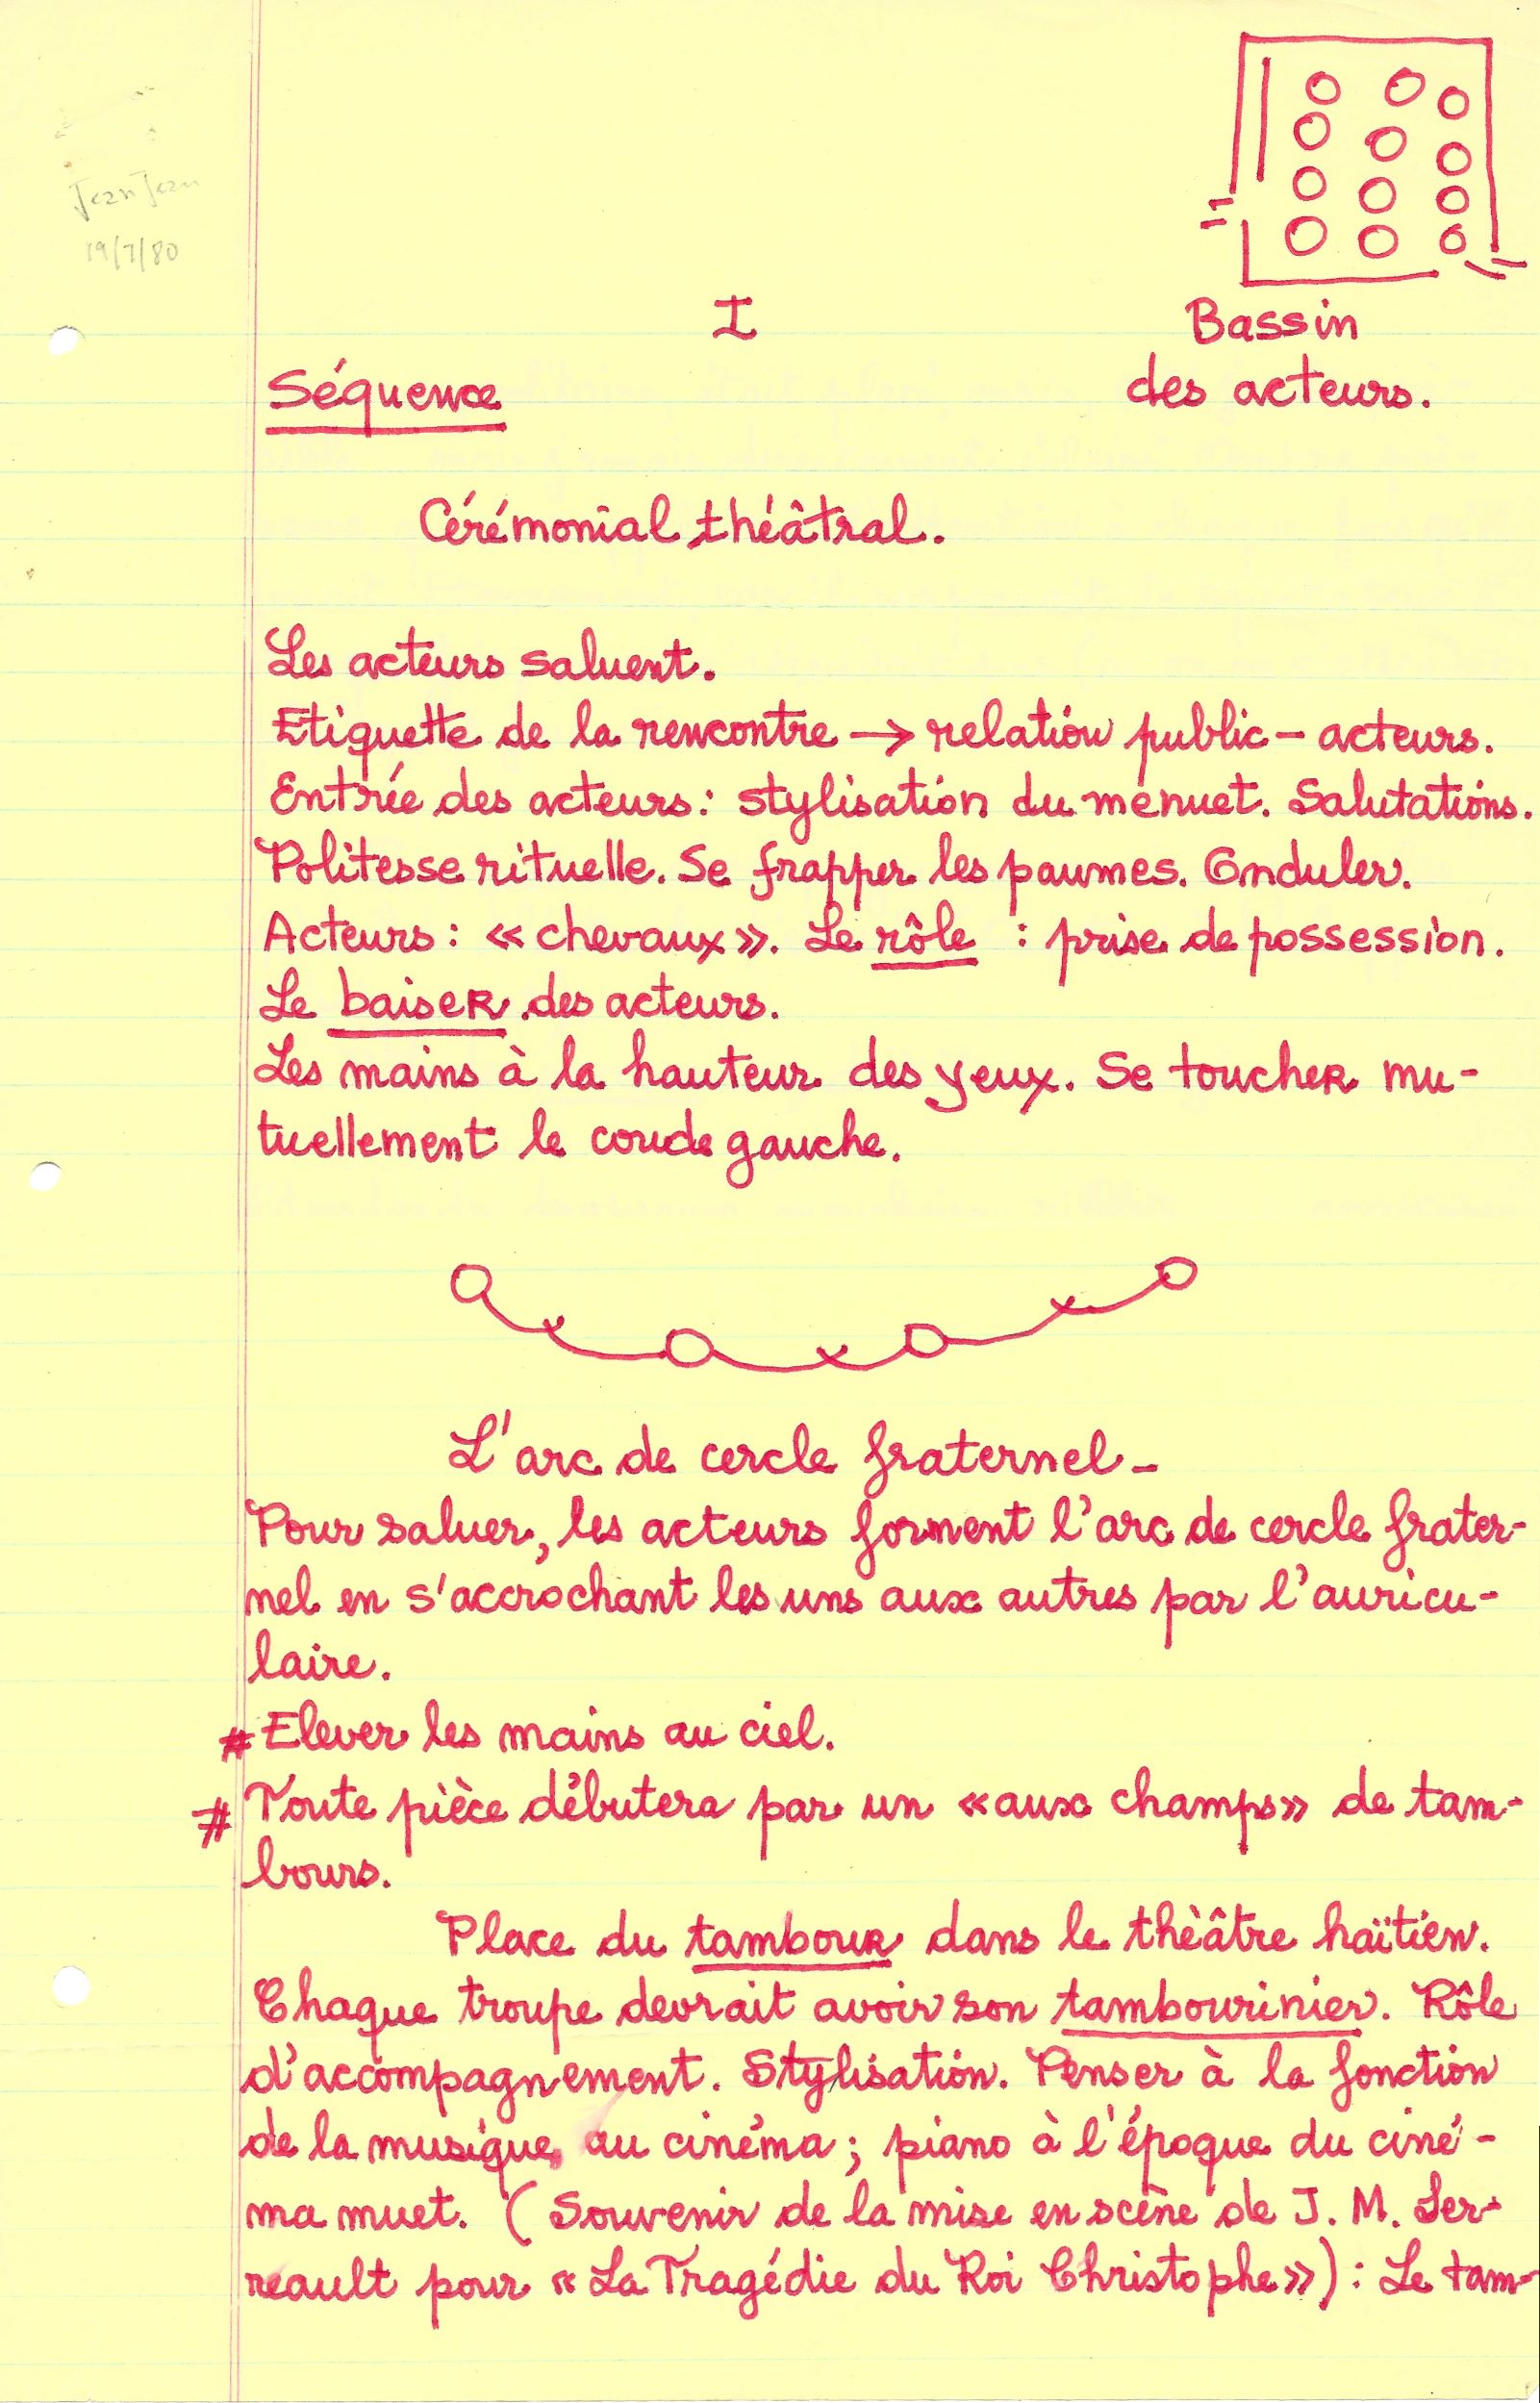 Jean Jean
19/7/80
I
Bassin
des acteurs.
Séquence
Cérémonial théâtral.
Les acteurs saluent.
Etiquette de la rencontre → relation public – acteurs.
Entrée des acteurs : stylisation du menuet. Salutations.
Politesse rituelle. Se frapper les paumes. Onduler.
Acteurs : « chevaux ». Le rôle : prise de possession.
Le baiser des acteurs.
Les mains à la hauteur des yeux. Se toucher mu-
tuellement le coude gauche.
L'arc de cercle fraternel –
Pour saluer, les acteurs forment l'arc de cercle frater-
nel en s'accrochant les uns aux autres par l'auricu-
laire.
# Elever les mains au ciel.
# Toute pièce débutera par un « aux champs » de tam-
bours.
Place du tambour dans le théâtre haïtien.
Chaque troupe devrait avoir son tambourinier. Rôle
d'accompagnement. Stylisation. Penser à la fonction
de la musique au cinéma ; piano à l'époque du ciné-
ma muet. (Souvenir de la mise en scène de J. M. Ser-
reault pour « La Tragédie du Roi Christophe ») : Le tam-